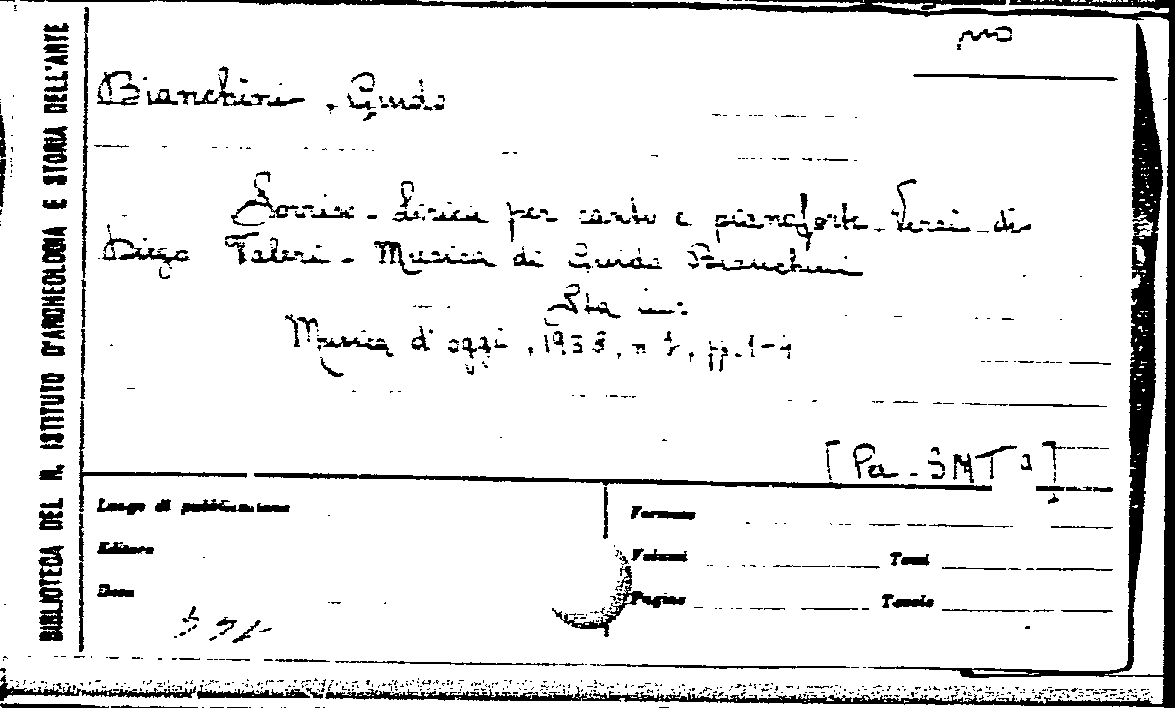 BIBLIOTECA DEL R. ISTITUTO D'ARCHEOLOGIA E STORIA DELL'ARTE
Bianchini, Guido
Sorriso - Lirica per canto e pianoforte - Versi di
Diego Valeri - Musica di Guido Bianchini
Sta in:
Musica d'oggi, 1938, n , pp. 1-4
[Pa-SMT ]
Luogo di pubblicazione
Editore
Data
Formato
Volumi Tomi
Pagine Tavole